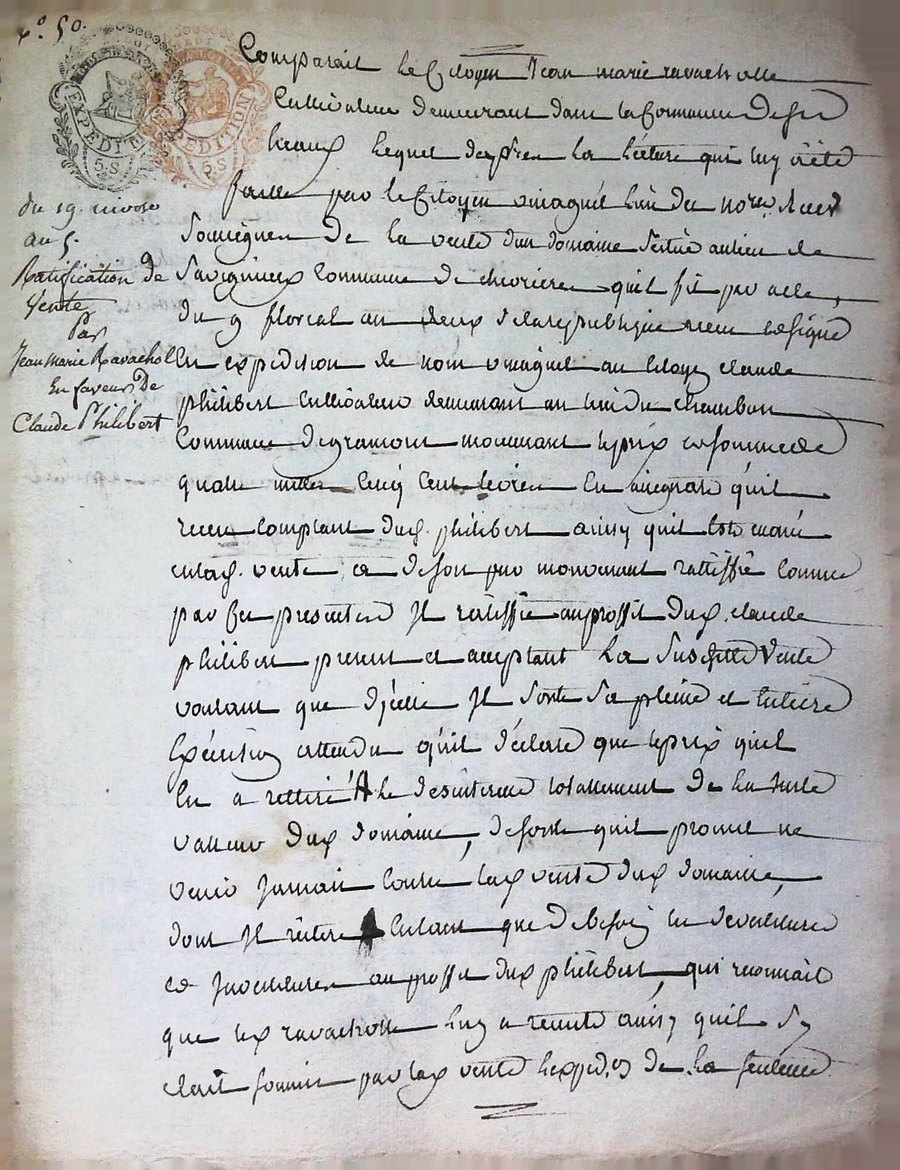 50.
EXPEDITION
5.S
EXPEDITION
5.S
du 19. nivose
au 5.
Ratification de
Vente
Par
Jean Marie Ravachol
En faveur De
Claude Philibert
Comparait le Citoyen Jean marie ravacholle
Cultivateur demeurant dans la Commune de
lequel la lecture qui luy a été
faitte par le Citoyen l'un des no.res
Soussignes De la vente d'un domaine Scitué au lieu de
Savignieux Commune de chevrieres quil fit par acte,
du 9 floreal an deux de la republique receu et signé
En expedition de nom au Citoyen Claude
philibert Cultivateur demeurant au lieu du Chambon
Commune de gramont moienant le prix et somme de
quatre milles Cinq Cent livres En assignats qu'il
receu Comptant dud. philibert ainsy quil
en lad. vente, et de son pur mouvement rattiffie Comme
par Ces presentes Il ratiffie au proffit dud. claude
philibert present et acceptant la Susditte Vente
voulant que d'icelle Il sorte Sa pleine et Entiere
Exécution attendu qu'il déclare que le prix quil
En a rettiré A le desinteresse totallement De la Juste
valleur dud domaine, de sorte quil promet ne
venir Jamais Contre lad vente dud domaine,
dont Il reitere En tant que de besoin
et au proffit dud philibert, qui reconnait
que led ravacholle luy a remis ainsy quil S'y
etait soumis par lad vente l'exped.on de la Sentence